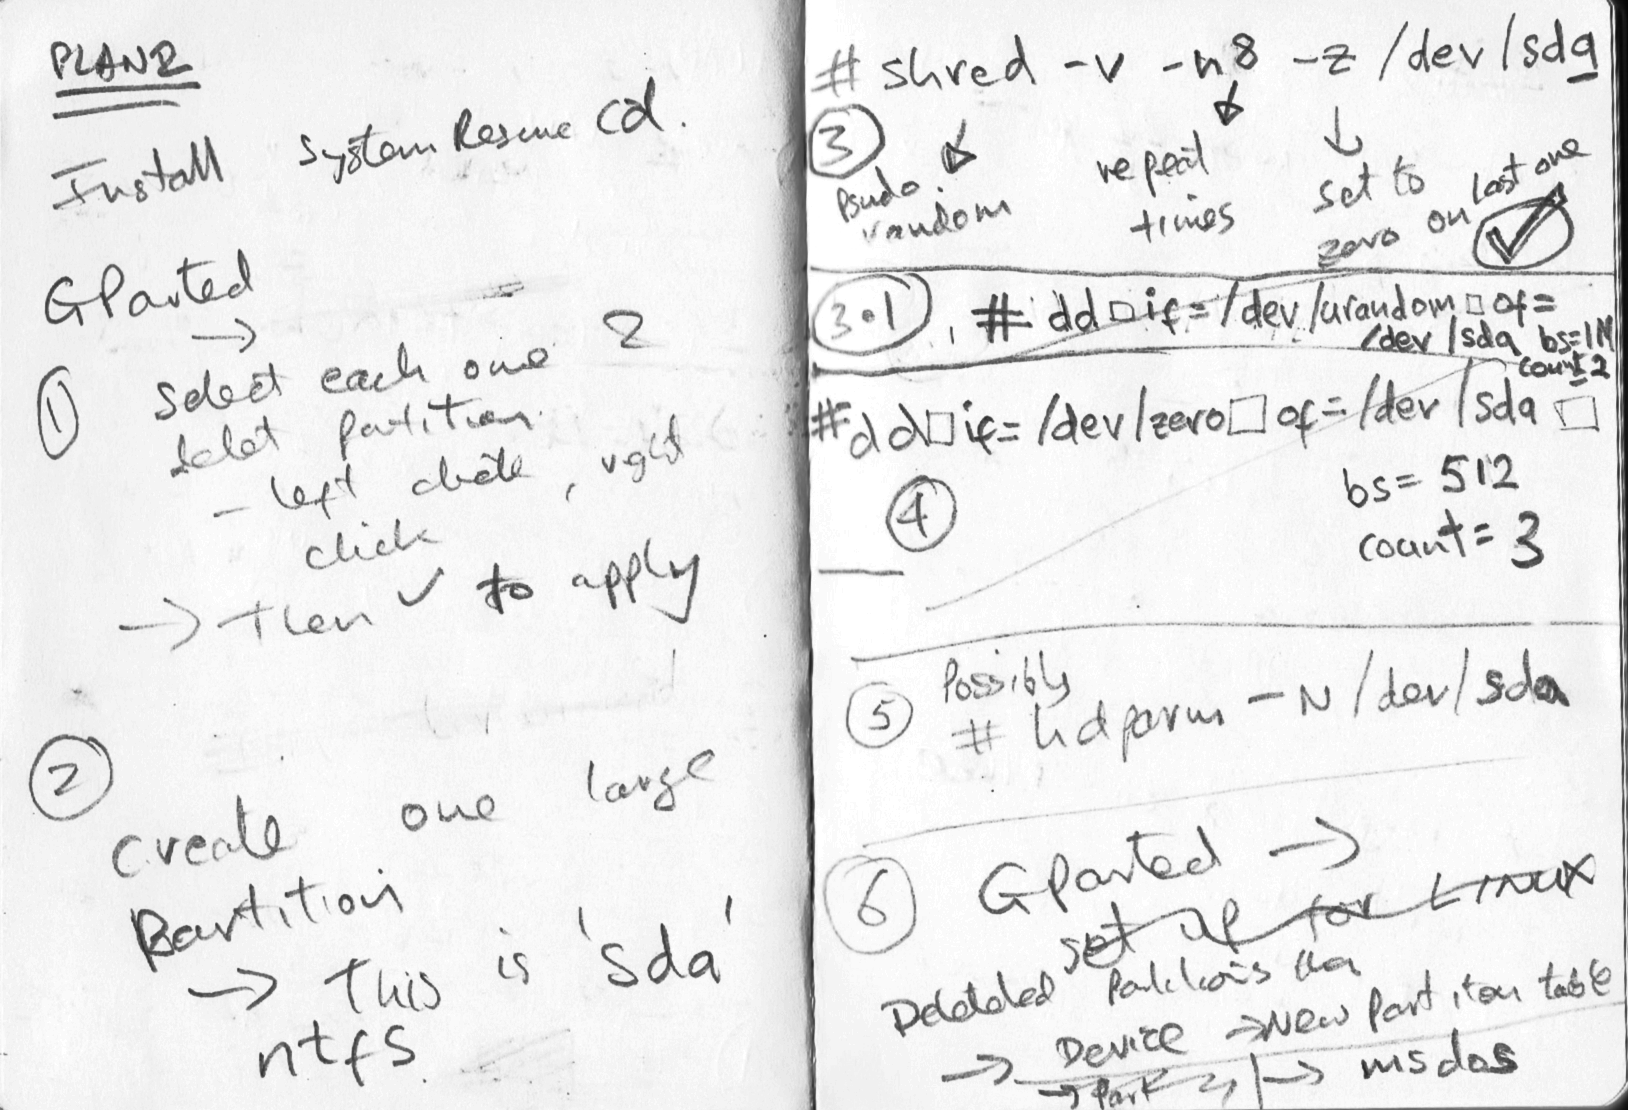 PLAN2
Install System Rescue Cd.
GParted
→
① Select each one &
delet partition.
– left click, right
click
→ then ✓ to apply
② Create one large
Partition
→ This is 'sda'
ntfS
# shred -v -n8 -z /dev/sda
③
Psudo random
repeat times
set to zero on last one
3.1 . # dd□if=/dev/urandom□of=
/dev/sda bs=1M
count=2
# dd□if=/dev/zero□of=/dev/sda□
④
bs=512
count=3
⑤ Possibly
# hdparm -N /dev/sda
⑥ GParted →
set up for LINUX
Deleted Partitions
→ Device → New Partition table
→ Part | → msdos